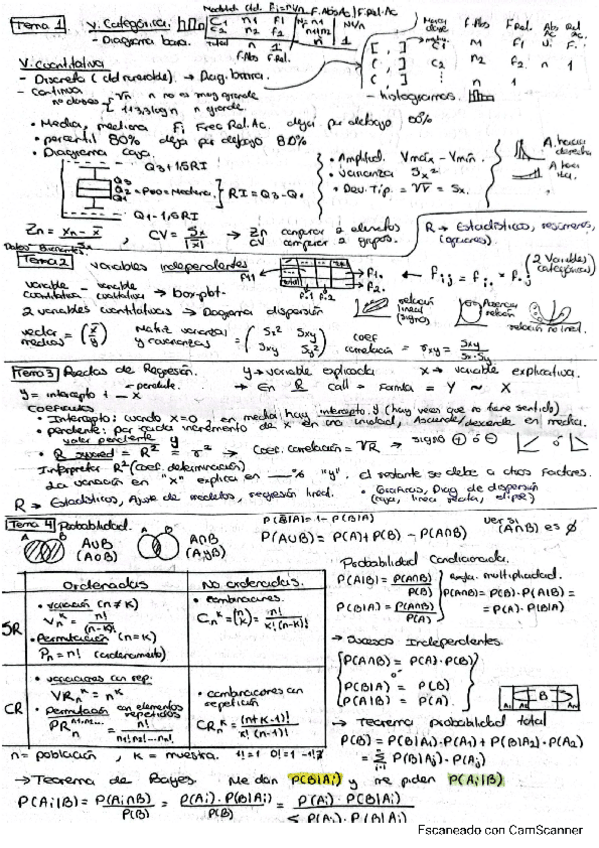 Tema 1
V. Categórica
- Diagrama barra.
Total n 1
F.Abs F.Rel.
F.Abs F.Rel. Abs Ac Rel Ac
V. cuantitativa
- Discreta
- continua
nº clases √n n no es muy grande
n grande.
- histogramas.
• Media, mediana Fi Frec Rel. Ac. deja por debajo 00%
• percentil 80% deja por debajo 80%
• Diagrama caja.
Q3+1,5RI
Q3
Q2 = P50 = Mediana.
Q1
RI = Q3 - Q1
Q1-1,5RI
• Amplitud. Vmáx - Vmín.
• varianza Sx²
• Desv. Típ. = √V = Sx.
CV = Sx/|x̄|
→ Zn comparar 2 elementos
CV comparar 2 grupos.
R → Estadísticos, resúmenes,
Tema 2 variables independientes
(2 variables categóricas)
fij = fi. · f.j
variable cuantitativa - variable cualitativa → box-plot-
2 variables cuantitativas → Diagrama dispersión
relación lineal (signo)
Ausencia relación
relación no lineal.
vector medias = (x̄ ȳ)
Matriz varianzas y covarianzas = (Sx² Sxy Sxy Sy²)
coef correlación = rxy = Sxy/Sx·Sy
Tema 3 Rectas de Regresión. y → variable explicada x → variable explicativa.
→ En R call = Formula = Y ~ X
y = intercepto ± pendiente x
Coeficientes
• Intercepto: cuando x=0, en media hay intercepto y (hay veces que no tiene sentido)
• pendiente: por cada incremento de x en una unidad, Asciende/desciende en media.
valor pendiente y
• R squared = R² = r² → Coef. correlación = √R → signo + o -
Interpretar R² (coef. determinación)
La variación en "x" explica en __% "y", el restante se debe a otros factores.
R → Estadísticos, Ajuste de modelos, regresión lineal.
• Gráficas, Diag de dispersión
Tema 4 Probabilidad.
P(B̄|A) = 1 - P(B|A)
A B A∪B (A o B)
A B A∩B (A y B)
P(A∪B) = P(A) + P(B) - P(A∩B)
ver si (A∩B) es ∅
Ordenadas No ordenadas.
SR
• variación (n≠k)
Vn^k = n!/(n-k)!
• Permutación (n=k)
Pn = n! (ordenamiento)
• combinaciones.
Cn^k = (n k) = n!/k!(n-k)!
CR
• variaciones con rep:
VRn^k = n^k
• Permutación con elementos repetidos
PRn^n1,n2... = n!/n1!n2!...nn!
• combinaciones con repetición
CRn^k = (n+k-1)!/k!(n-1)!
Probabilidad Condicionada.
P(A|B) = P(A∩B)/P(B)
P(B|A) = P(A∩B)/P(A)
Regla multiplicidad.
P(A∩B) = P(B)·P(A|B) =
= P(A)·P(B|A)
→ Sucesos Independientes.
P(A∩B) = P(A)·P(B)
o
P(B|A) = P(B)
P(A|B) = P(A)
→ Teorema probabilidad total
P(B) = P(B|A1)·P(A1) + P(B|A2)·P(A2)
= Σ P(B|Aj)·P(Aj)
n = población, k = muestra. 1!=1 0!=1
→ Teorema de Bayes Me dan P(B|Ai) y me piden P(Ai|B)
P(Ai|B) = P(Ai∩B)/P(B) = P(Ai)·P(B|Ai)/P(B) = P(Ai)·P(B|Ai)/Σ P(Ai)·P(B|Ai)
Escaneado con CamScanner